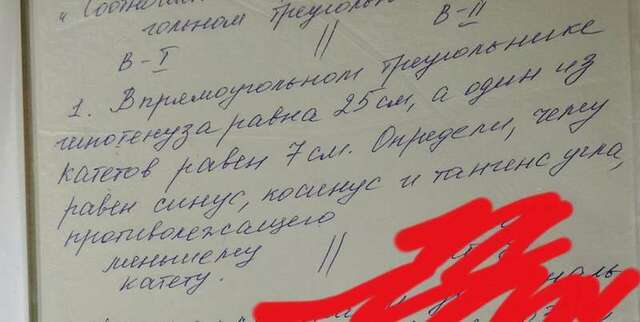 "Соотнош
гольном треуголь
В-I || В-II
1. В прямоугольном треугольнике
гипотенуза равна 25 см, а один из
катетов равен 7 см. Определи, чему
равен синус, косинус и тангенс угла,
противолежащего
меньшему
катету. ||